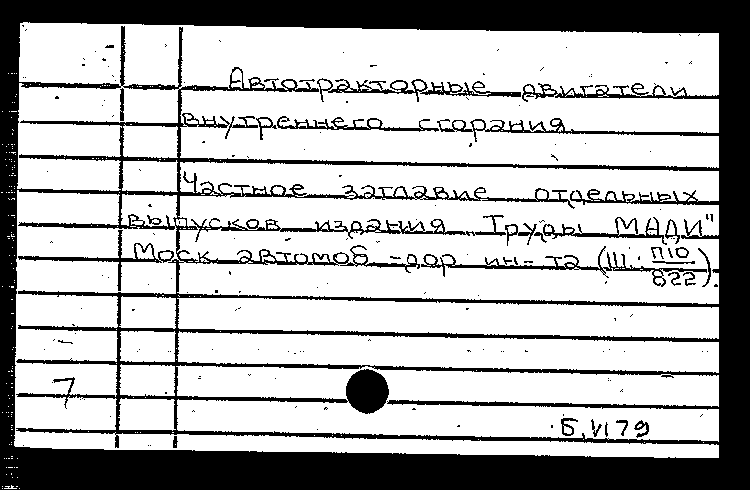 Автотракторные двигатели
внутреннего сгорания.
Частное заглавие отдельных
выпусков издания "Труды МАДИ"
Моск. автомоб.-дор. ин-та (III: П10/822).
7
Б.VI 79